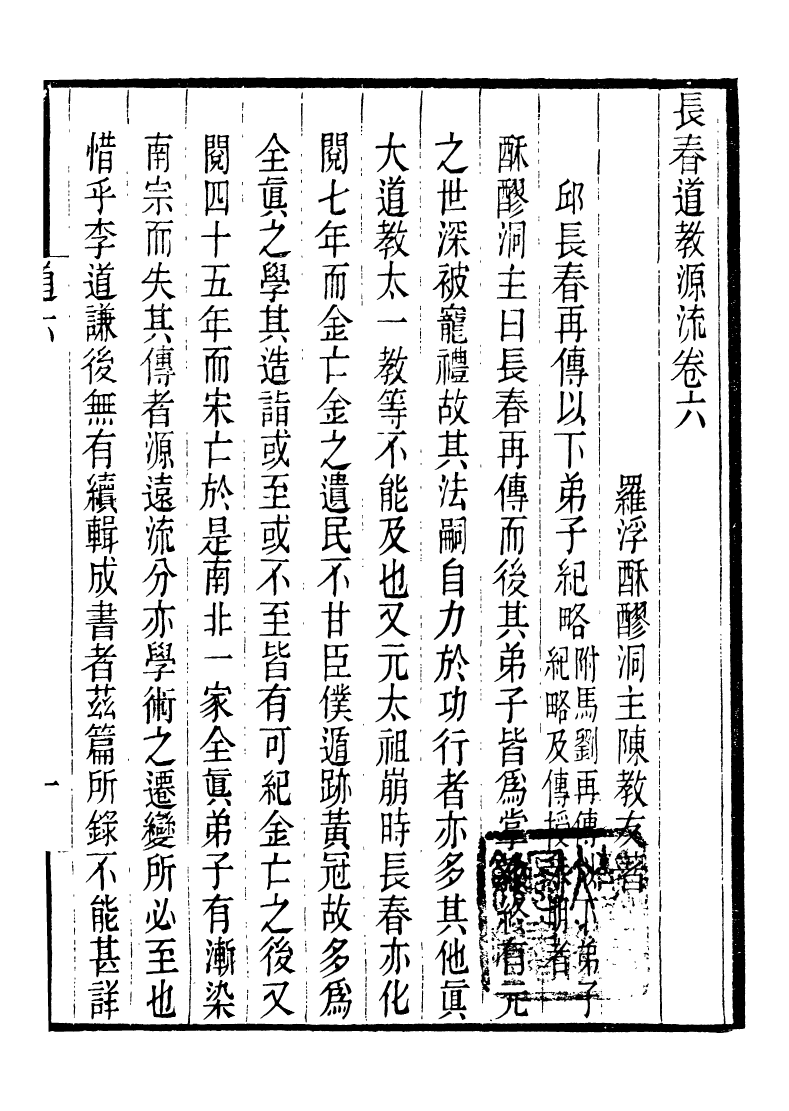 長春道教源流卷六
羅浮酥醪洞主陳教友著
邱長春再傳以下弟子紀略附馬劉再傳以下弟子
紀略及傳授未明者
酥醪洞主曰長春再傳而後其弟子皆爲掌教終有元
之世深被寵禮故其法嗣自力於功行者亦多其他眞
大道教太一教等不能及也又元太祖崩時長春亦化
閱七年而金亡金之遺民不甘臣僕遁跡黃冠故多爲
全眞之學其造詣或至或不至皆有可紀金亡之後又
閱四十五年而宋亡於是南北一家全眞弟子有漸染
南宗而失其傳者源遠流分亦學術之遷變所必至也
惜乎李道謙後無有續輯成書者茲篇所錄不能甚詳
道六
一